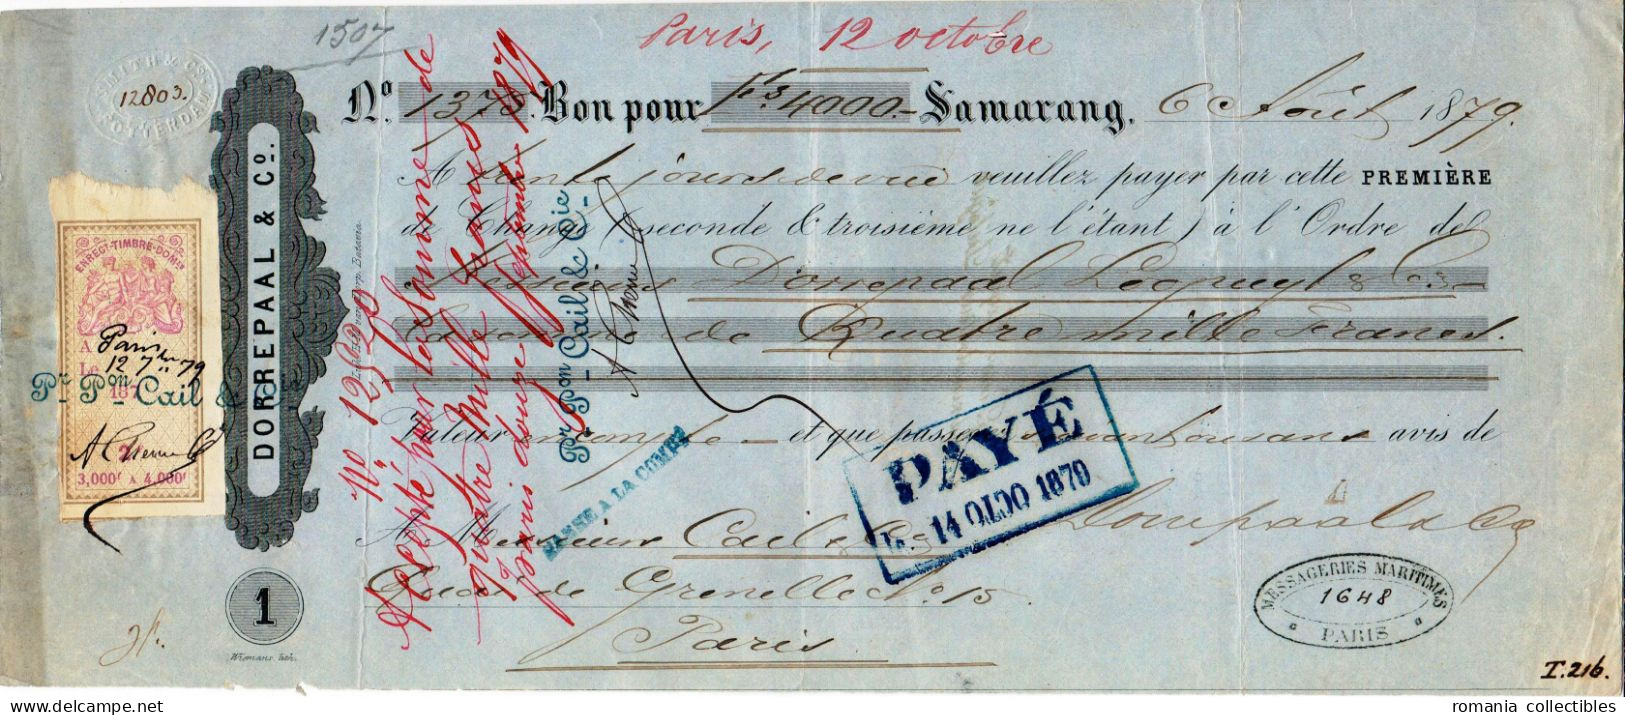 1507
Paris, 12 octobre
SMITH & Co
12803.
ROTTERDAM
No. 1378. Bon pour frs 4000.- Samarang, 6 Août 1879.
A trente jours de vue veuillez payer par cette PREMIÈRE
de Change (seconde & troisième ne l'étant) à l'Ordre de
Messieurs Dorrepaal & Co
La somme de Quatre mille Francs.
Valeur en compte - et que passerez suivant ou sans avis de
A Messieurs Cail & Co
Dorrepaal & Co
Quai de Grenelle No 15
Paris
DORREPAAL & Co.
1
ENREGt-TIMBRE-DOMes
A Paris
Le 12 7bre 79
187
Pr Pon Cail &
3,000f A 4,000f
No 12520
Accepté pour la somme de
quatre mille francs
Paris douze septembre 1879
Pr Pon Cail & Cie
PASSÉ A LA COMPté
PAYÉ
14 OCT 1879
MESSAGERIES MARITIMES
1648
PARIS
I.216.
romania collectibles